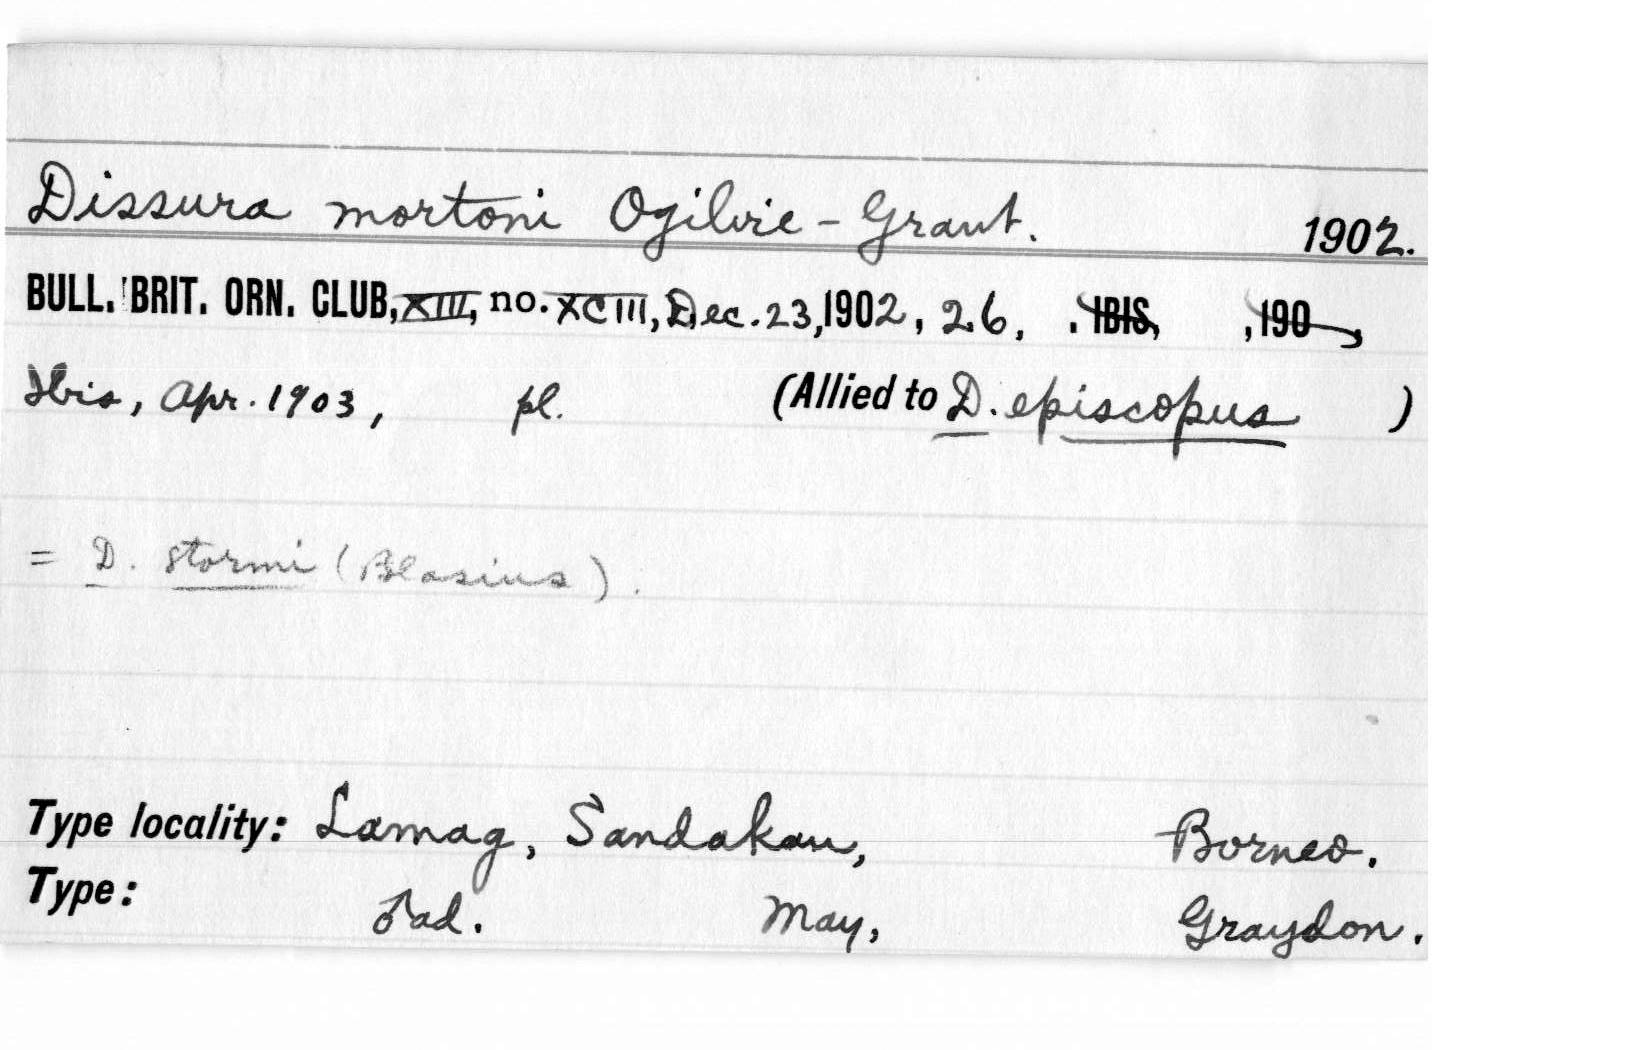 Dissura mortoni Ogilvie-Grant. 1902.
BULL. BRIT. ORN. CLUB, XIII, no. XCIII, Dec. 23, 1902, 26, . IBIS, , 190 ,
Ibis, Apr. 1903, pl. (Allied to D. episcopus )
= D. stormi (Blasius).
Type locality: Lamag, Sandakan, Borneo.
Type: ♂ad. May, Graydon.